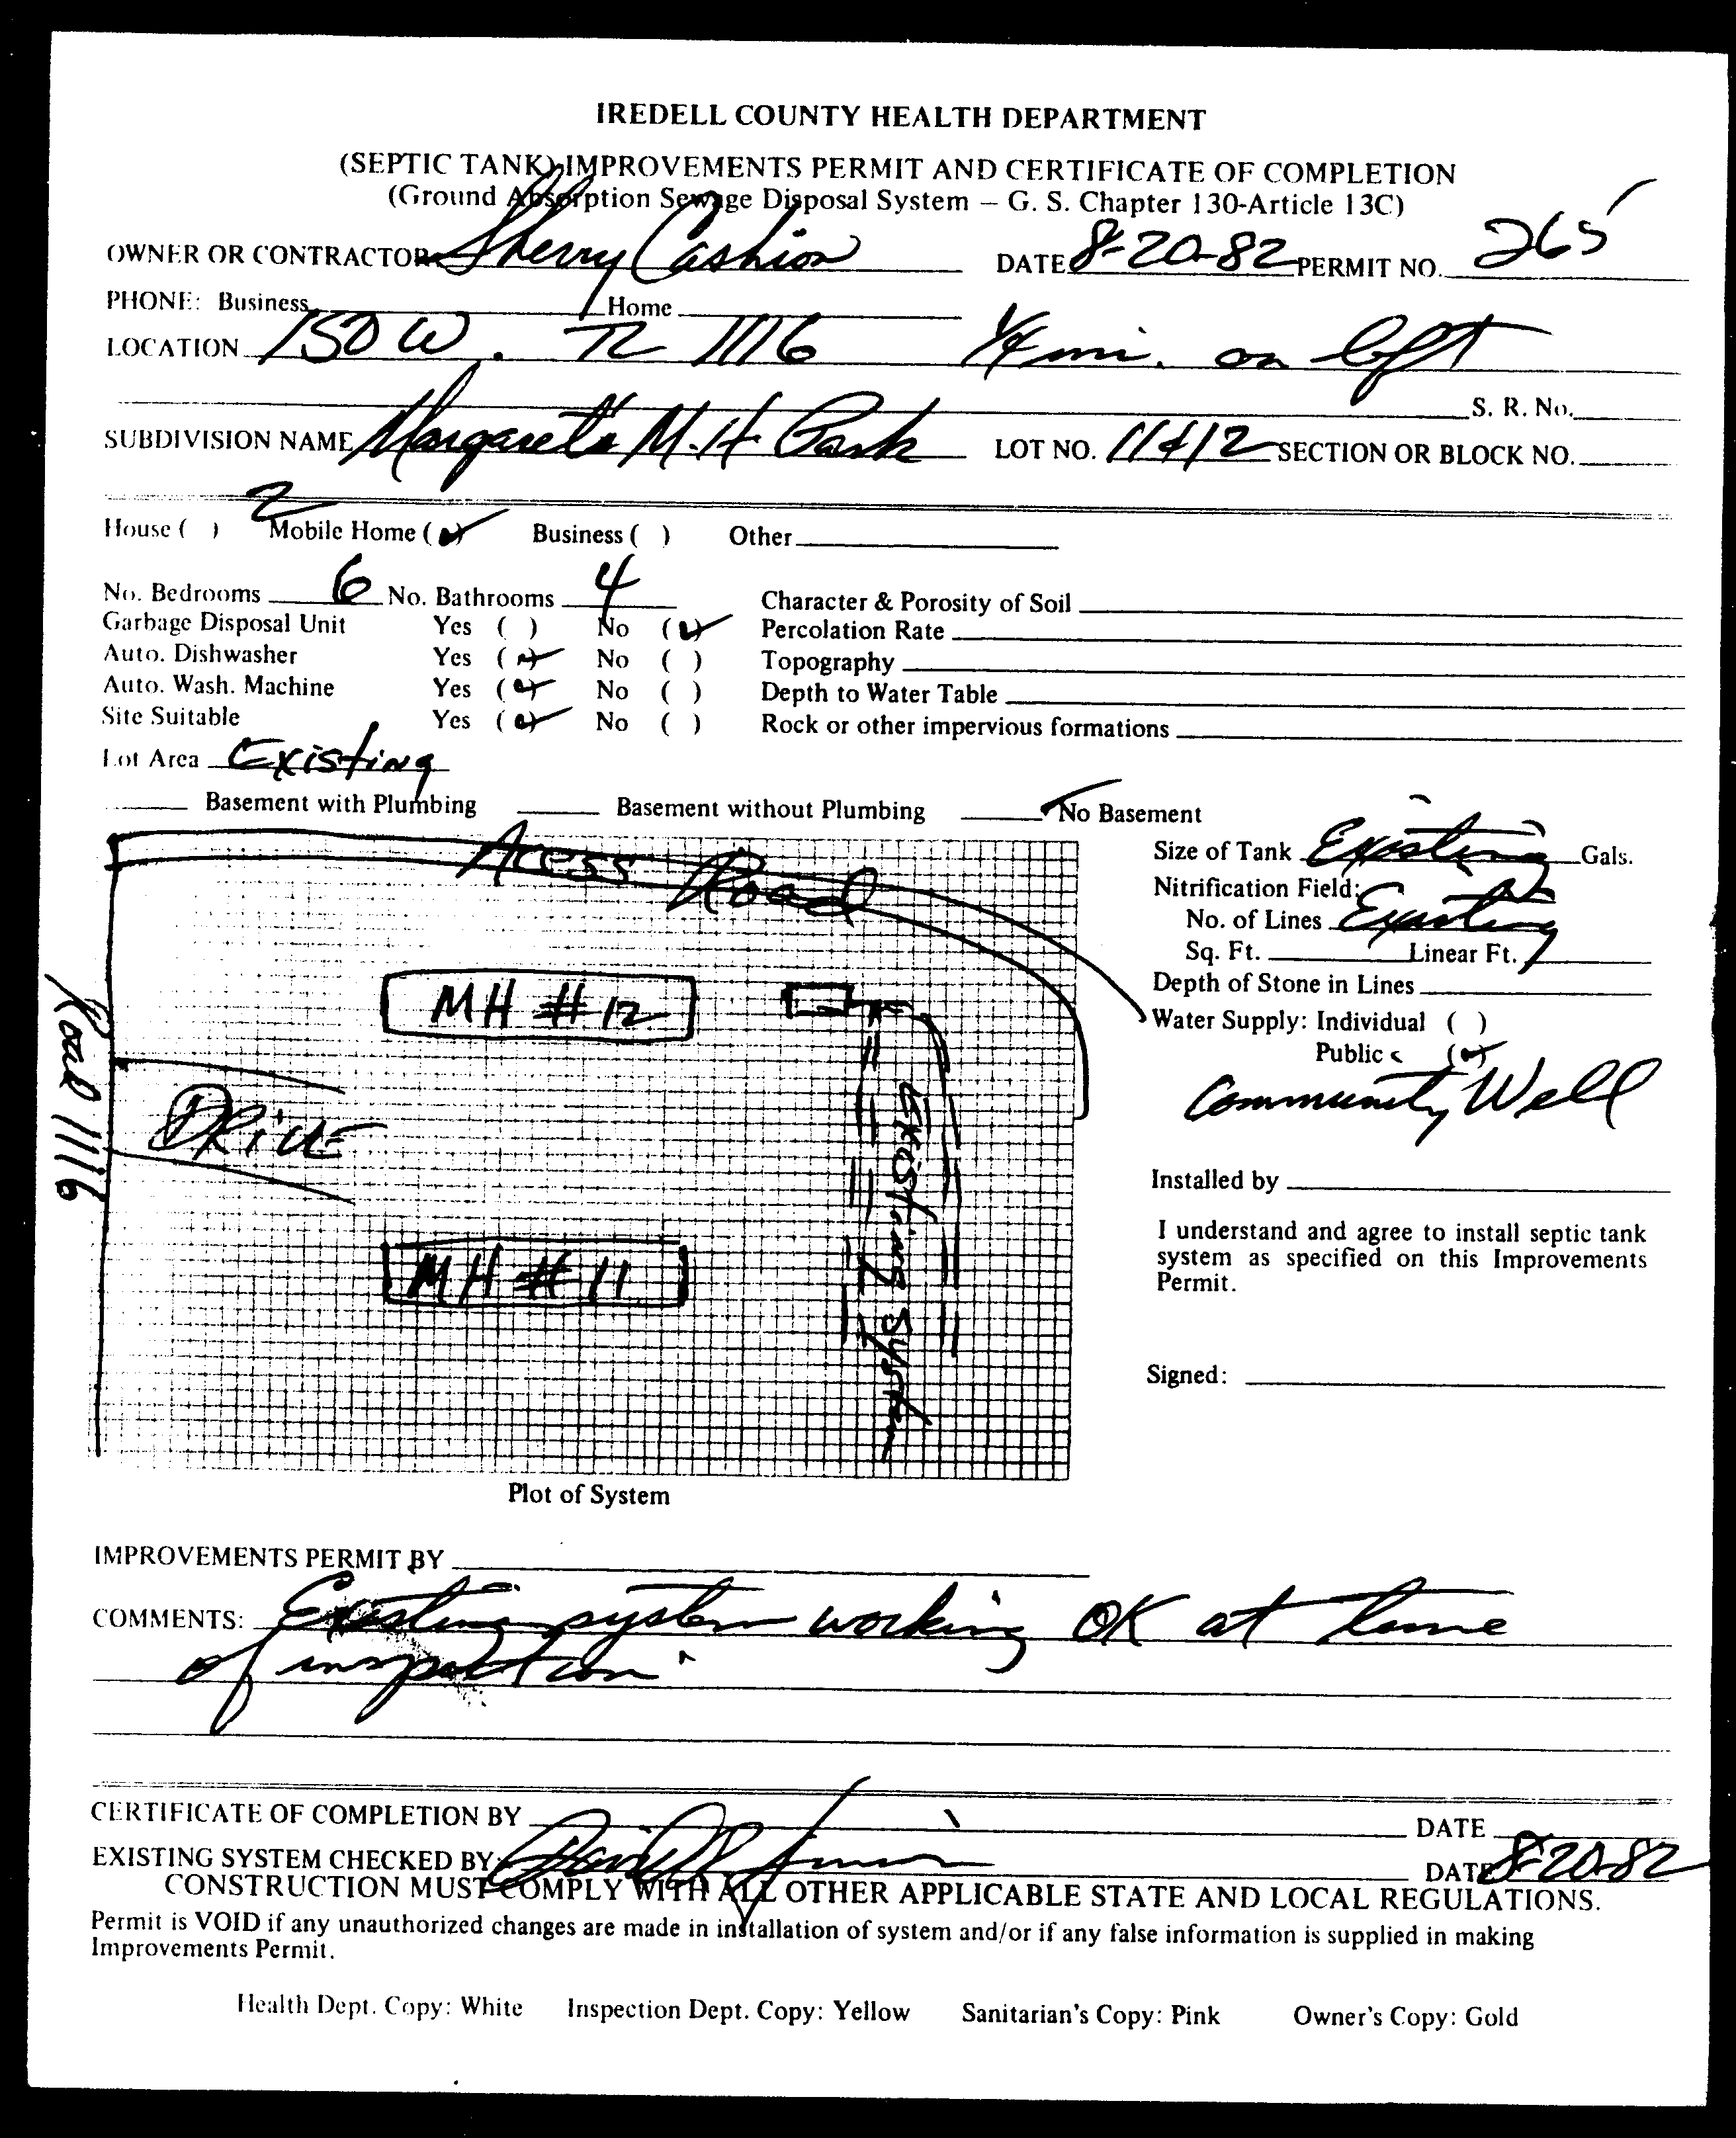 IREDELL COUNTY HEALTH DEPARTMENT
(SEPTIC TANK) IMPROVEMENTS PERMIT AND CERTIFICATE OF COMPLETION
(Ground Absorption Sewage Disposal System – G. S. Chapter 130-Article 13C)
OWNER OR CONTRACTOR Sherry Cashion DATE 8-20-82 PERMIT NO. 265
PHONE: Business Home
LOCATION 150 W. TL 1116 1/4 mi. on left
S. R. No.
SUBDIVISION NAME Margaret's M.H. Park LOT NO. 11 & 12 SECTION OR BLOCK NO.
2
House ( ) Mobile Home (✓) Business ( ) Other
No. Bedrooms 6 No. Bathrooms 4 Character & Porosity of Soil
Garbage Disposal Unit Yes ( ) No (✓) Percolation Rate
Auto. Dishwasher Yes (✓) No ( ) Topography
Auto. Wash. Machine Yes (✓) No ( ) Depth to Water Table
Site Suitable Yes (✓) No ( ) Rock or other impervious formations
Lot Area Existing
Basement with Plumbing Basement without Plumbing ✓ No Basement
Acess Road
MH # 12
Road 1116
DRive
MH # 11
Existing System
Plot of System
Size of Tank Existing Gals.
Nitrification Field:
No. of Lines Existing
Sq. Ft. Linear Ft.
Depth of Stone in Lines
Water Supply: Individual ( )
Public (✓)
Community Well
Installed by
I understand and agree to install septic tank
system as specified on this Improvements
Permit.
Signed:
IMPROVEMENTS PERMIT BY
COMMENTS: Existing system working OK at time
of inspection.
CERTIFICATE OF COMPLETION BY DATE
EXISTING SYSTEM CHECKED BY: DATE 8-20-82
CONSTRUCTION MUST COMPLY WITH ALL OTHER APPLICABLE STATE AND LOCAL REGULATIONS.
Permit is VOID if any unauthorized changes are made in installation of system and/or if any false information is supplied in making
Improvements Permit.
Health Dept. Copy: White Inspection Dept. Copy: Yellow Sanitarian's Copy: Pink Owner's Copy: Gold